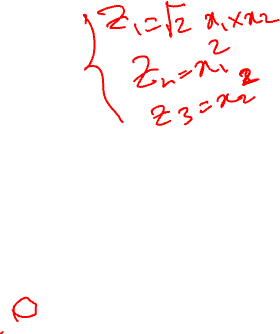 Z₁ = √2 x₁ × x₂
Z₂ = x₁²
Z₃ = x₂²